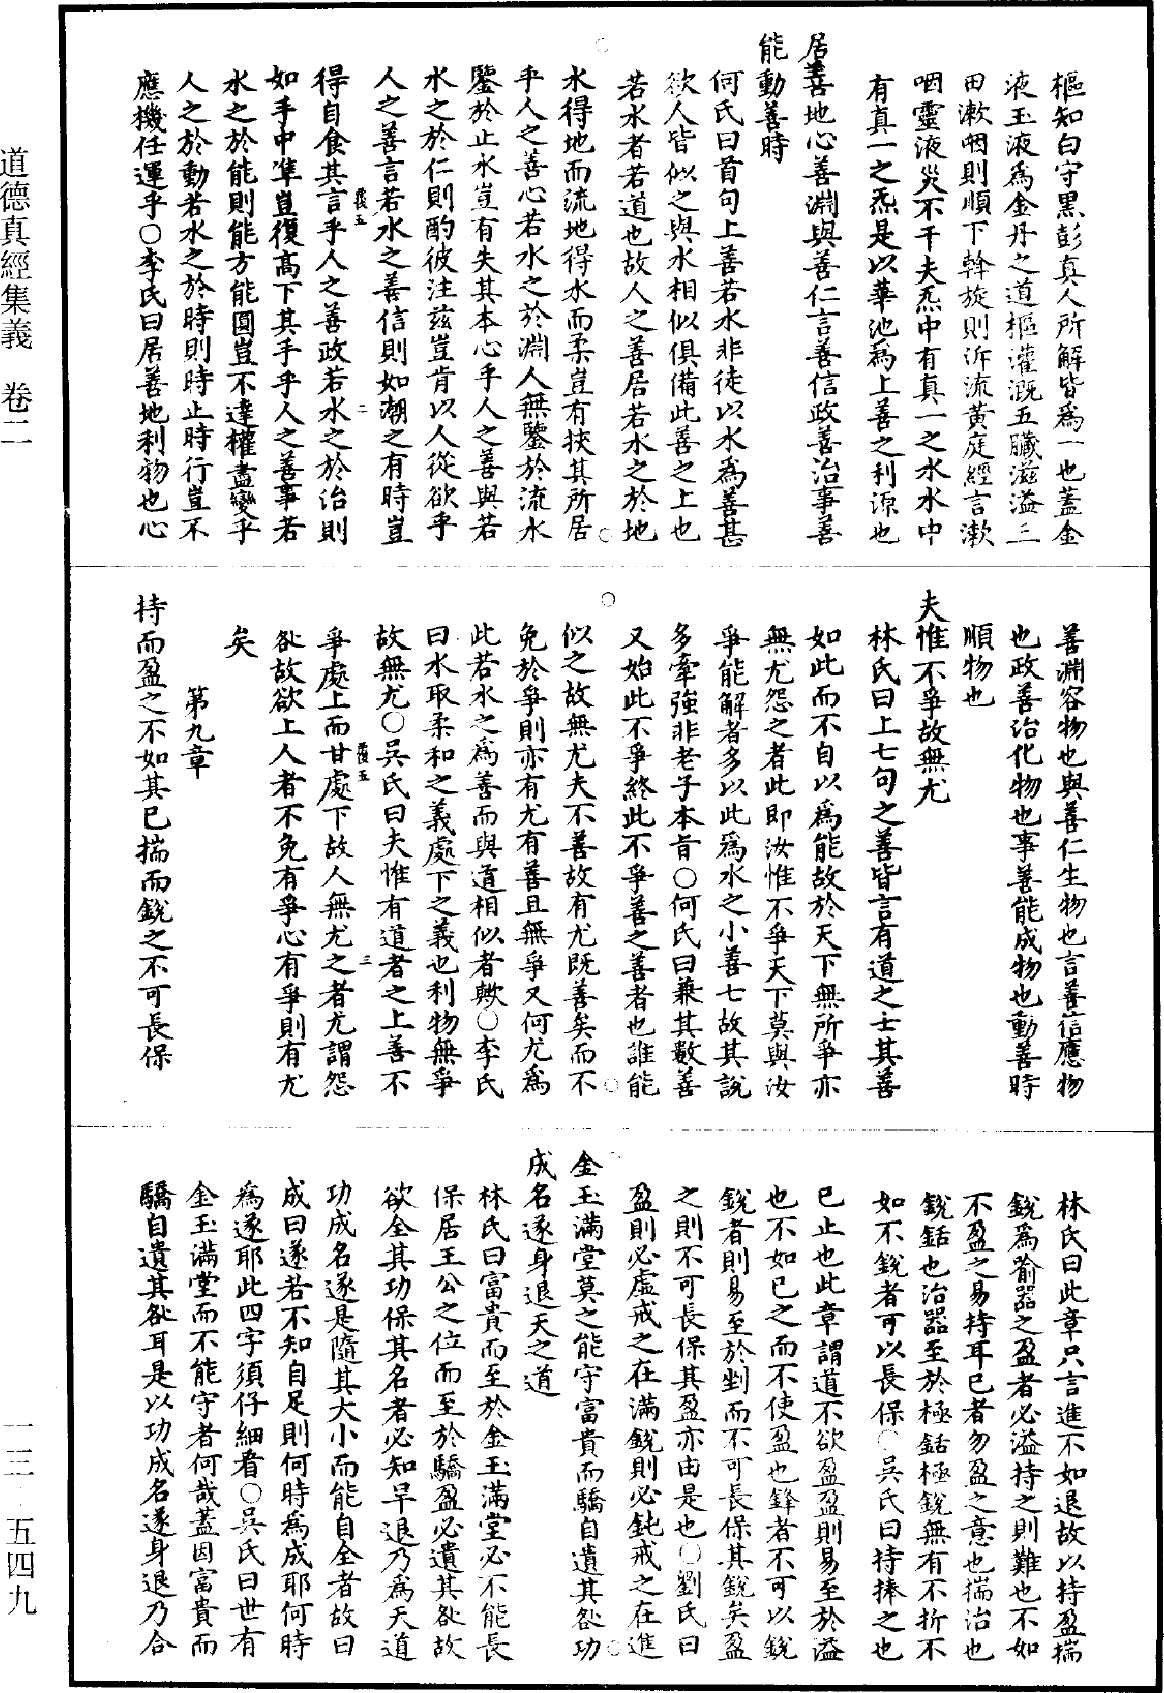 樞知白守黑彭真人所解皆為一也蓋金
液玉液為金丹之道樞灌溉五臟滋溢三
田漱咽則順下斡旋則泝流黃庭經言漱
咽靈液災不干夫炁中有真一之水水中
有真一之炁是以華池為上善之利源也
居善地心善淵與善仁言善信政善治事善
能動善時
何氏曰首句上善若水非徒以水為善甚
欲人皆似之與水相似俱備此善之上也
若水者若道也故人之善居若水之於地
水得地而流地得水而柔豈有挾其所居
乎人之善心若水之於淵人無鑒於流水
鑒於止水豈有失其本心乎人之善與若
水之於仁則酌彼注茲豈肯以人從欲乎
人之善言若水之善信則如潮之有時豈
得自食其言乎人之善政若水之於治則
如手中準豈復高下其手乎人之善事若
水之於能則能方能圓豈不達權盡變乎
人之於動若水之於時則時止時行豈不
應機任運乎○李氏曰居善地利物也心
善淵容物也與善仁生物也言善信應物
也政善治化物也事善能成物也動善時
順物也
夫惟不爭故無尤
林氏曰上七句之善皆言有道之士其善
如此而不自以為能故於天下無所爭亦
無尤怨之者此即汝惟不爭天下莫與汝
爭能解者多以此為水之小善七故其說
多牽強非老子本旨○何氏曰兼其數善
又始此不爭終此不爭善之善者也誰能
似之故無尤夫不善故有尤既善矣而不
免於爭則亦有尤有善且無爭又何尤為
此若水之為善而與道相似者歟○李氏
曰水取柔和之義處下之義也利物無爭
故無尤○吳氏曰夫惟有道者之上善不
爭處上而甘處下故人無尤之者尤謂怨
咎故欲上人者不免有爭心有爭則有尤
矣
第九章
持而盈之不如其已揣而銳之不可長保
林氏曰此章只言進不如退故以持盈揣
銳為喻器之盈者必溢持之則難也不如
不盈之易持耳已者勿盈之意也揣治也
銳銛也治器至於極銛極銳無有不折不
如不銳者可以長保○吳氏曰持捧之也
已止也此章謂道不欲盈盈則易至於溢
也不如已之而不使盈也鋒者不可以銳
銳者則易至於剉而不可長保其銳矣盈
之則不可長保其盈亦由是也○劉氏曰
盈則必虛戒之在滿銳則必鈍戒之在進
金玉滿堂莫之能守富貴而驕自遺其咎功
成名遂身退天之道
林氏曰富貴而至於金玉滿堂必不能長
保居王公之位而至於驕盈必遺其咎故
欲全其功保其名者必知早退乃為天道
功成名遂是隨其大小而能自全者故曰
成曰遂若不知自足則何時為成耶何時
為遂耶此四字須仔細看○吳氏曰世有
金玉滿堂而不能守者何哉蓋因富貴而
驕自遺其咎耳是以功成名遂身退乃合
道德真經集義 卷二
一三·五四九